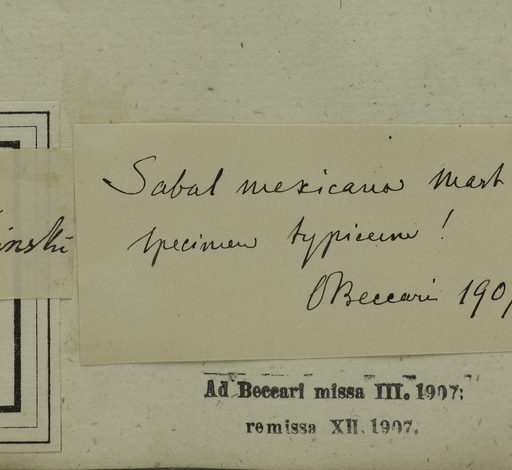 Sabal mexicana Mart
specimen typicum!
OBeccari 190
Ad Beccari missa III. 1907;
remissa XII. 1907.